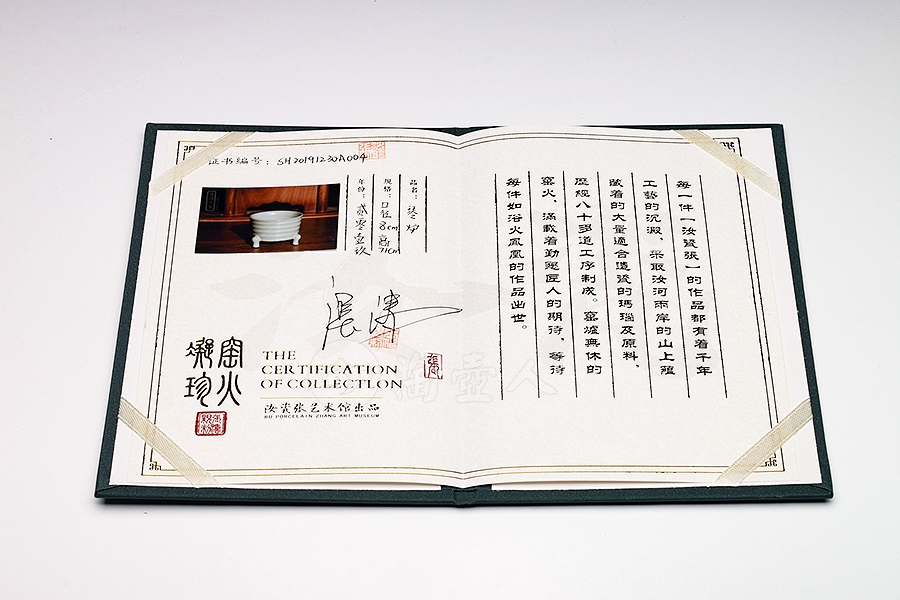 证书编号：SH20191230A004
品名：炉
规格：口径8cm
年份：贰零壹玖
窑火
凝珍
THE
CERTIFICATION
OF COLLECTLON
汝瓷张艺术馆出品
RU PORCELAIN ZHANG ART MUSEUM
淘壶人
每一件「汝瓷張」的作品都有着千年
工藝的沉澱，采取汝河兩岸的山上蘊
藏着的大量適合造瓷的瑪瑙及原料，
歷經八十多道工序制成。窑爐無休的
窑火，滿載着勤勞匠人的期待，等待
每件如浴火鳳凰的作品出世。